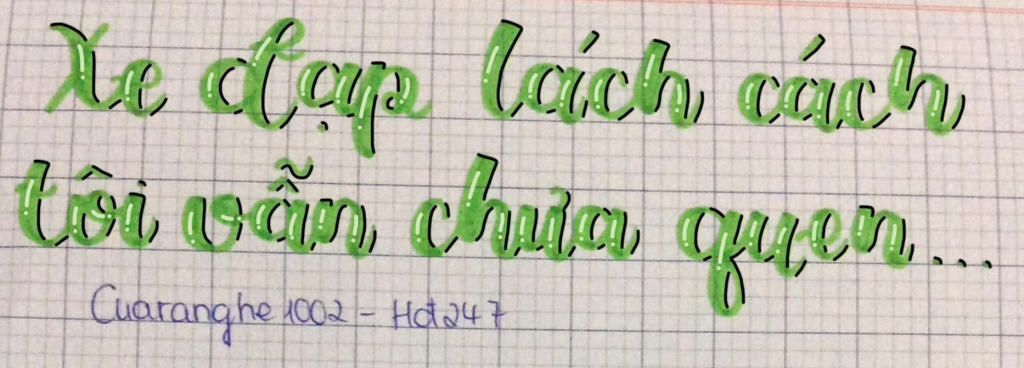 Xe đạp lách cách
tôi vẫn chưa quen...
Cuaranghe1002 - Hd247